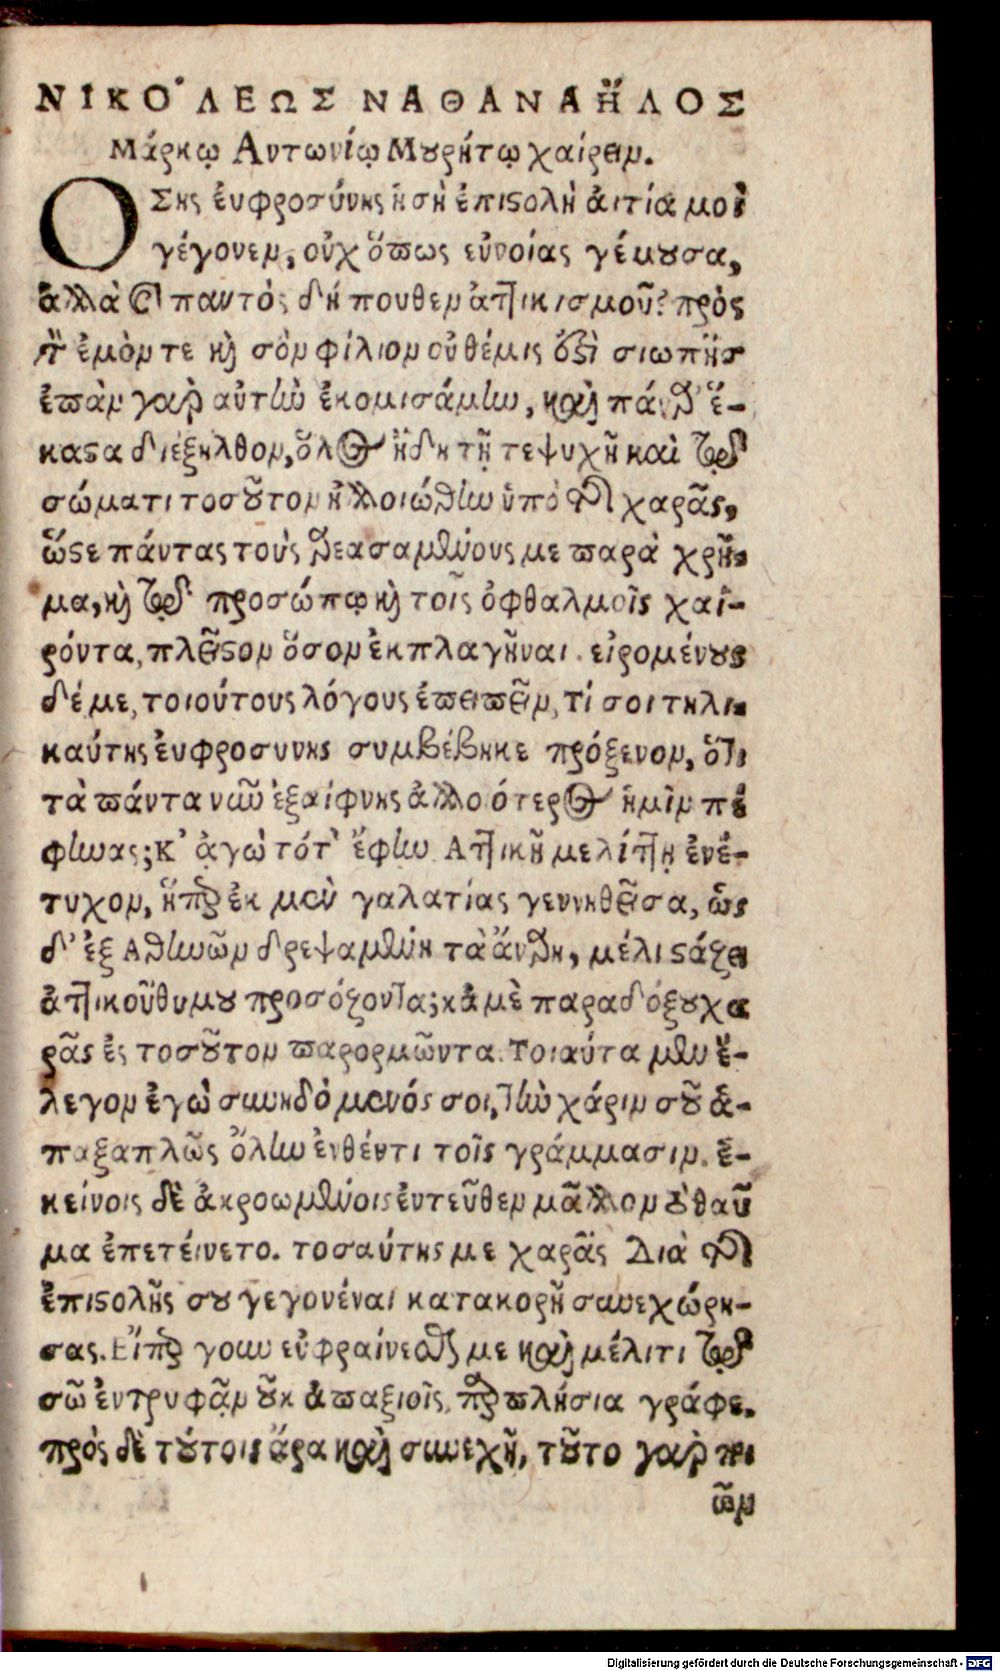 ΝΙΚΟ΄ΛΕΩΣ ΝΑΘΑΝΑΗ῎ΛΟΣ
Μάρκῳ Αντωνίῳ Μουρήτῳ χαίρειν.
ΟΣης ἐυφροσύνης ἡ σὴ ἐπιστολὴ ἀιτία μοὶ
γέγονεν, οὐχ ὅπως εὐνοίας γέμουσα,
ἀλλὰ παντός δή πουθεν ἀττικισμοῦ? πρὸς
ἐμόν τε καὶ σὸν φίλιον οὐ θέμις ἐστὶ σιωπῆσ
ἐπὰν γαρ αὐτὴν ἐκομισάμην, καὶ πάνθ' ἕ-
καστα διέξηλθον, ὅλος ἤδη τῇ τε ψυχῇ καὶ τῷ
σώματι τοσοῦτον ἠλλοιώθην ὑπὸ τῆς χαρᾶς,
ὥστε πάντας τοὺς θεασαμένους με παρὰ χρῆ-
μα, καὶ τῷ προσώπῳ καὶ τοῖς ὀφθαλμοῖς χαί-
ροντα, πλεῖστον ὅσον ἐκπλαγῆναι. εἰρομένους
δέ με, τοιούτους λόγους ἐπειπεῖν, Τί σοι τηλι-
καύτης ἐυφροσυνης συμβέβηκε πρόξενον, ὅτι
τὰ πάντα νῦν ἐξαίφνης ἀλλοιότερος ἡμῖν πέ
φηνας; Κ' ἀγὼ τότ' ἔφην Ατικῇ μελίττῃ ἐνέ-
τυχον, ἥπερ ἐκ μὲν γαλατίας γεννηθεῖσα, ὡς
δ' ἐξ Αθηνῶν δρεψαμένη τὰ ἄνθη, μέλι στάζει
ἀττικοῦ θυμου προσόζοντα; κἀμὲ παραδόξου χα
ρᾶς ἐς τοσοῦτον παρορμῶντα. Τοιαύτα μὲν ἔ-
λεγον ἐγὼ συνηδόμενός σοι, τὴν χάριν σοῦ ἁ-
παξαπλῶς ὅλην ἐνθέντι τοῖς γράμμασιν. ἐ-
κείνοις δὲ ἀκροωμένοις ἐντεῦθεν μᾶλλον ὁ θαῦ
μα ἐπετείνετο. τοσαύτης με χαρᾶς Διὰ τῆς
ἐπιστολῆς σου γεγονέναι κατακορῆ συνεχώρη-
σας. Εἴπερ γουν εὐφραίνεσθαί με καὶ μέλιτι τῷ
σῶ ἐντρυφᾷν οὐκ ἀπαξιοῖς, πλήσια γράφε.
πρὸς δὲ τούτοις ἄρα καὶ συνεχῆ, τοῦτο γαρ πι
ῶν
Digitalisierung gefördert durch die Deutsche Forschungsgemeinschaft - DFG